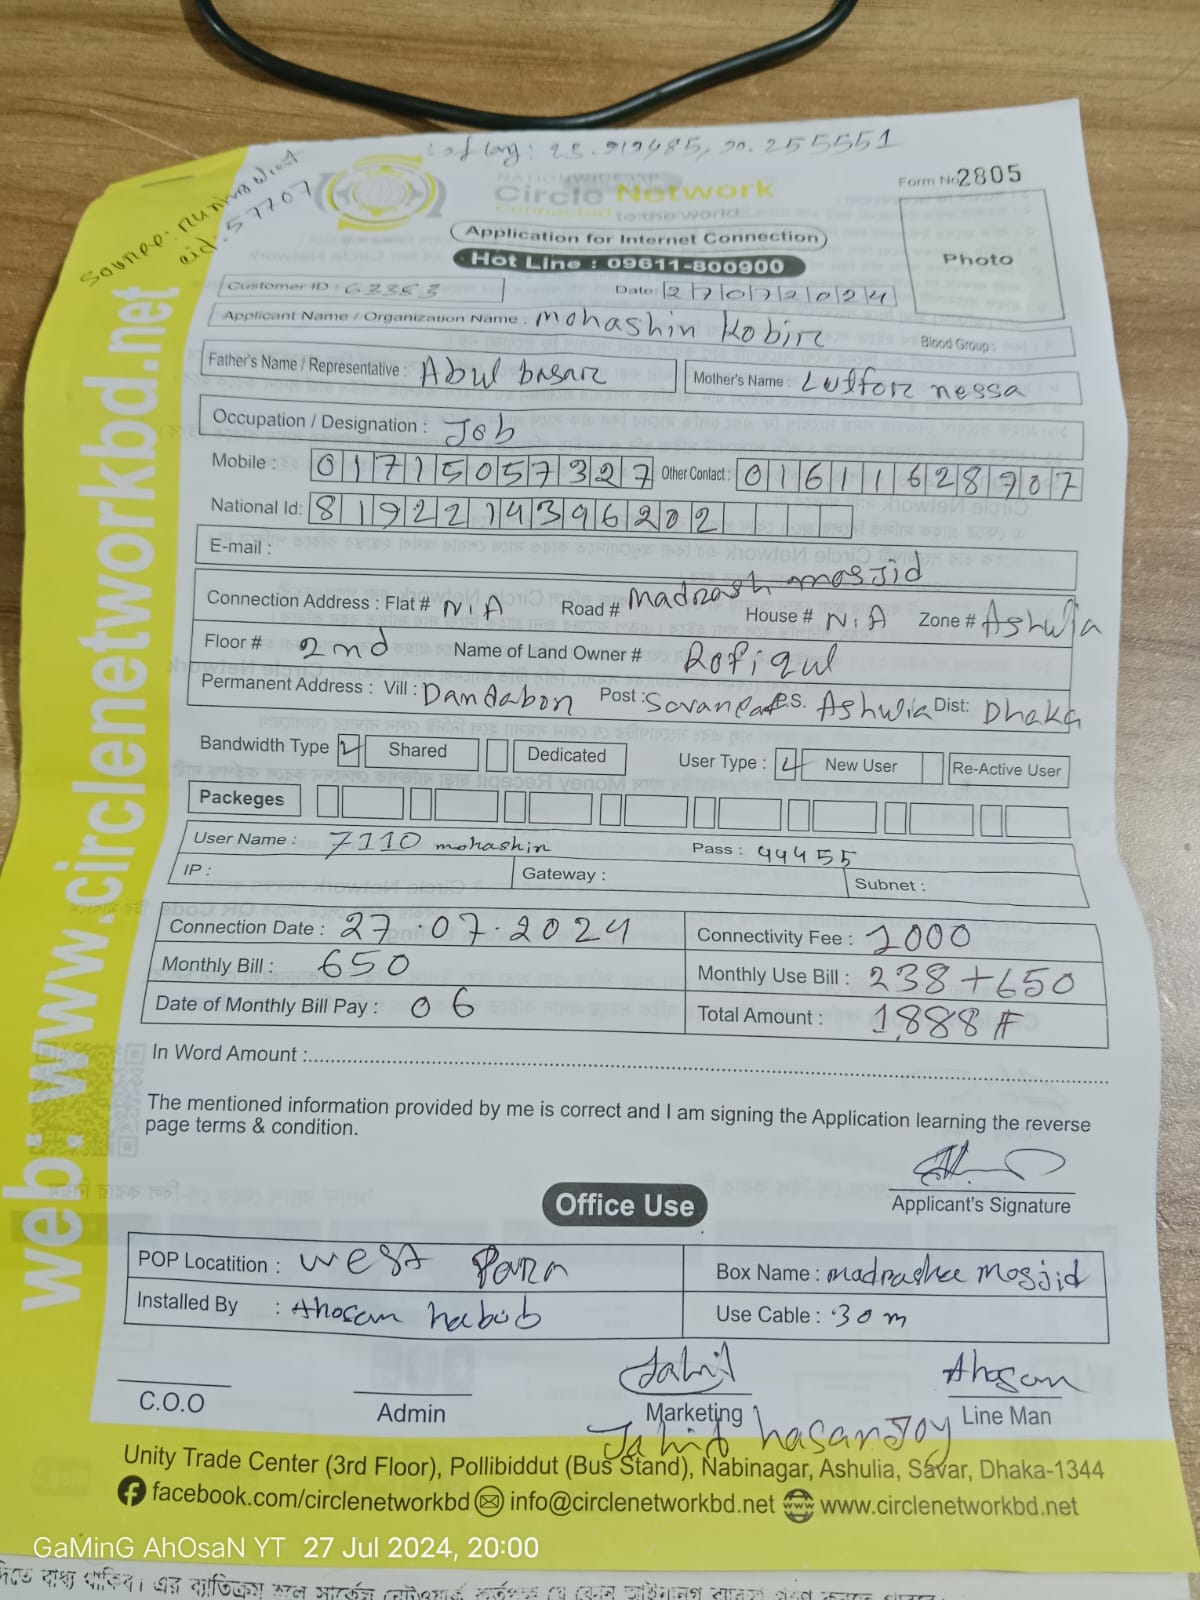 Lat long: 23.919485, 90.255551
Source: Running Client
cid: 57707
NATIONWIDE ISP
Circle Network
Connected to the world
Form No 2805
Application for Internet Connection
Hot Line : 09611-800900
Photo
Customer ID : 63353
Date: 27072024
Applicant Name / Organization Name : Mohashin Kobirc
Blood Group :
Father's Name / Representative : Abul basarc
Mother's Name : Lutforc nessa
Occupation / Designation : Job
Mobile : 01715057327 Other Contact : 01611628907
National Id: 8192214396202
E-mail :
Connection Address : Flat # N.A Road # Madrash mosjid House # N.A Zone # Ashulia
Floor # 2nd Name of Land Owner # Rofiqul
Permanent Address : Vill : Dandabon Post : P.S. Ashulia Dist: Dhaka
Bandwidth Type Shared Dedicated User Type : New User Re-Active User
Packeges
User Name : 7110 mohashin Pass : 44455
IP : Gateway : Subnet :
Connection Date : 27.07.2024 Connectivity Fee : 1000
Monthly Bill : 650 Monthly Use Bill : 238+650
Date of Monthly Bill Pay : 06 Total Amount : 1,888 #
In Word Amount :
The mentioned information provided by me is correct and I am signing the Application learning the reverse
page terms & condition.
Applicant's Signature
Office Use
POP Locatition : West Para Box Name : madrashee Mosjid
Installed By : Ahosan habib Use Cable : 30 m
Jahid Ahosan
C.O.O Admin Marketing Line Man
Jahid hasan Joy
Unity Trade Center (3rd Floor), Pollibiddut (Bus Stand), Nabinagar, Ashulia, Savar, Dhaka-1344
facebook.com/circlenetworkbd info@circlenetworkbd.net www.circlenetworkbd.net
web: www.circlenetworkbd.net
GaMinG AhOsaN YT 27 Jul 2024, 20:00